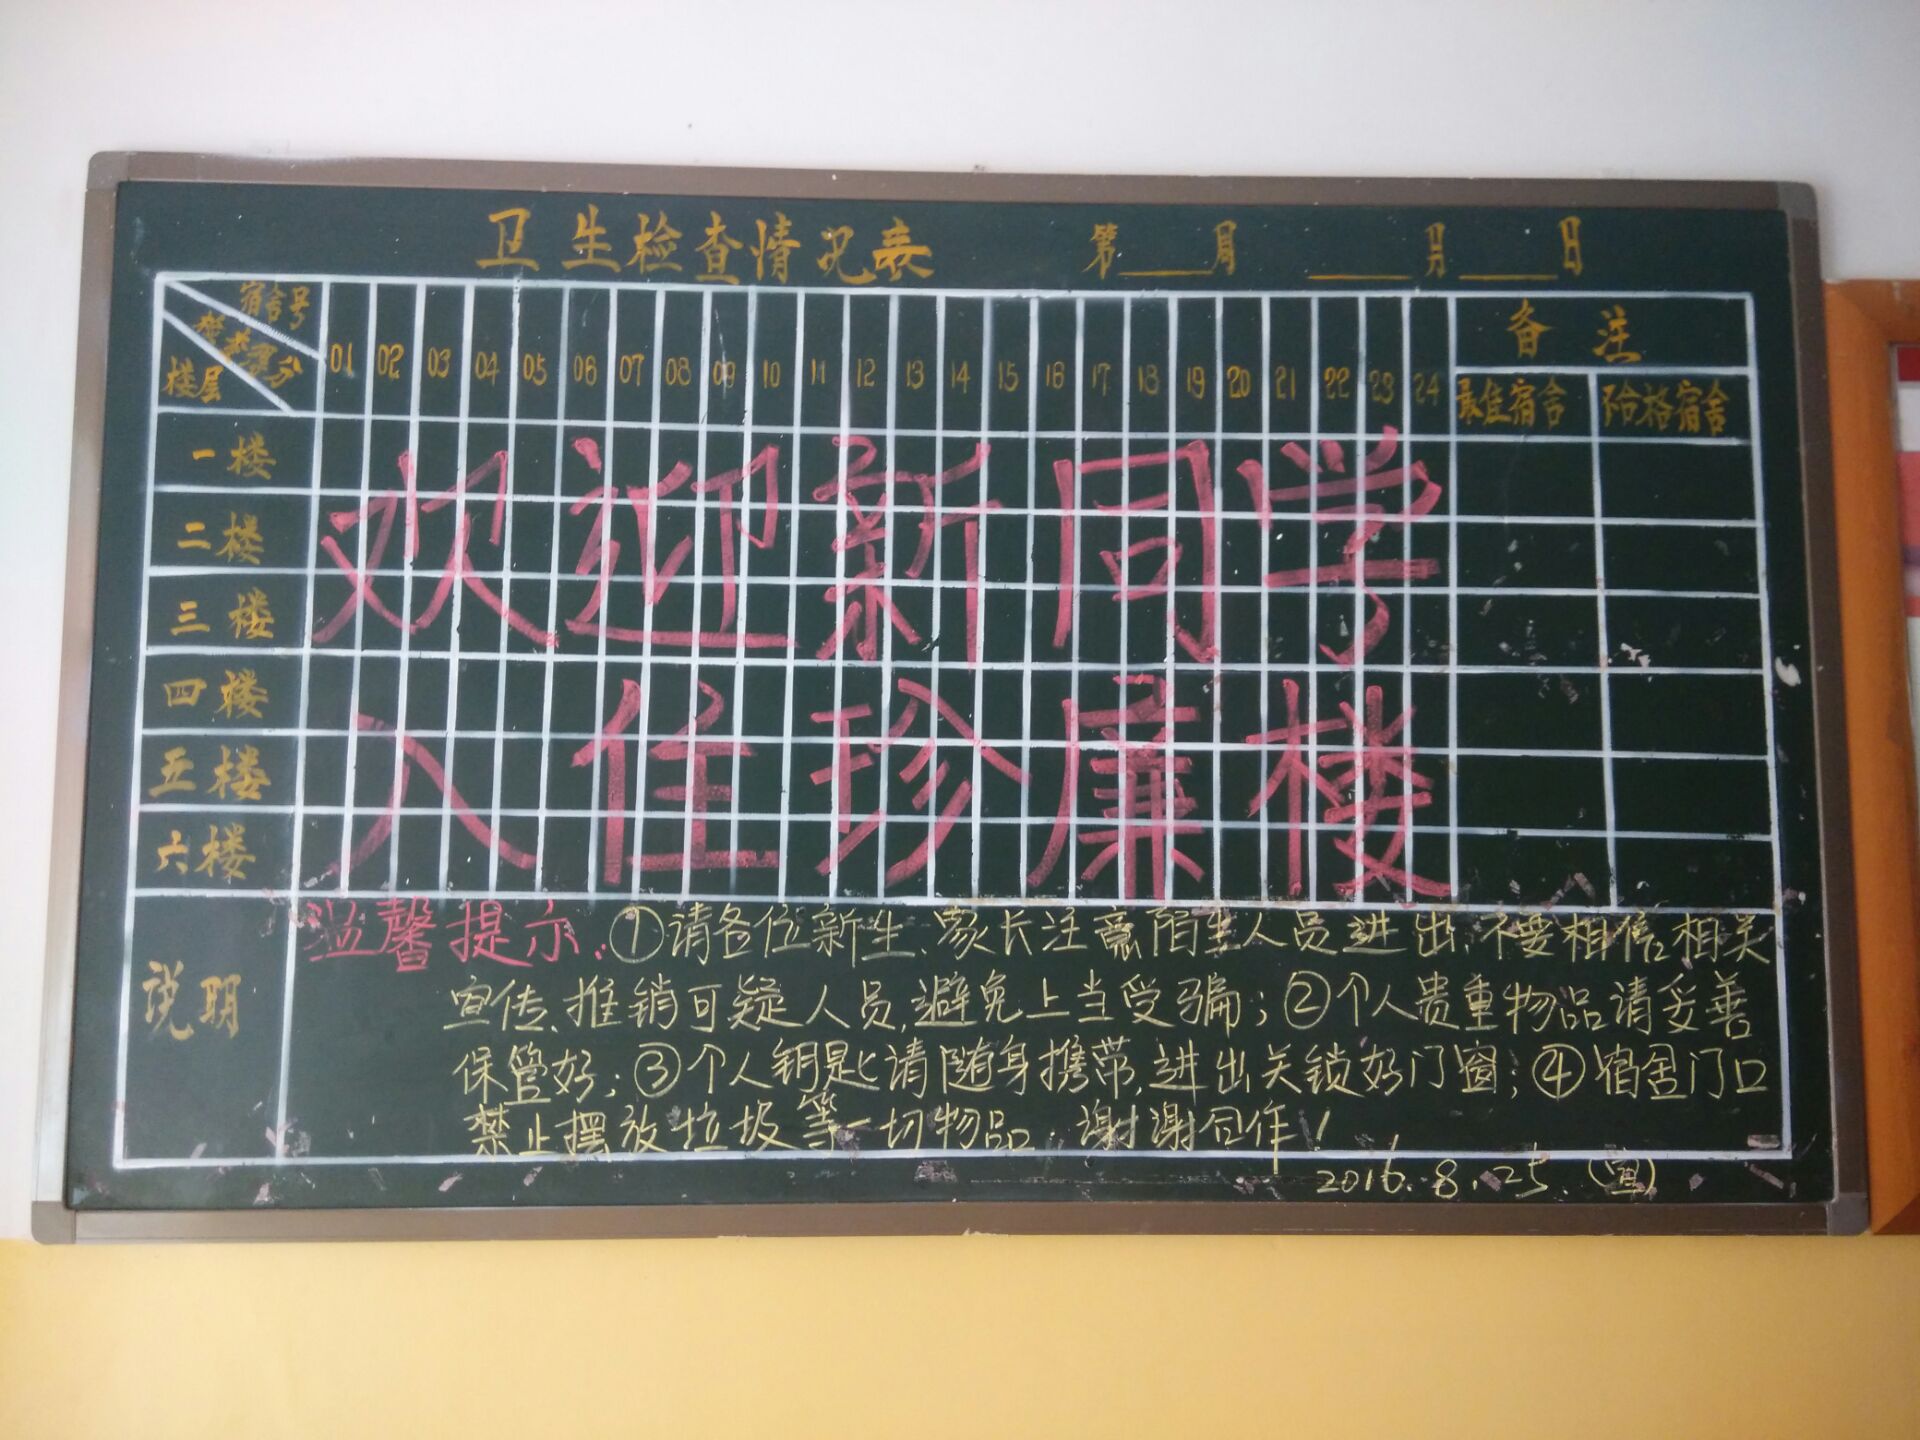 卫生检查情况表 第____周 ____月____日
宿舍号
楼层
分
01 02 03 04 05 06 07 08 09 10 11 12 13 14 15 16 17 18 19 20 21 22 23 24
备注
最佳宿舍 不合格宿舍
一楼
二楼
三楼
四楼
五楼
六楼
欢迎新同学
入住珍廉楼
说明
温馨提示:①请各位新生、家长注意陌生人员进出,不要相信相关
宣传、推销可疑人员,避免上当受骗;②个人贵重物品请妥善
保管好;③个人钥匙请随身携带,进出关锁好门窗;④宿舍门口
禁止摆放垃圾等一切物品.谢谢合作!
2016.8.25.(宣)